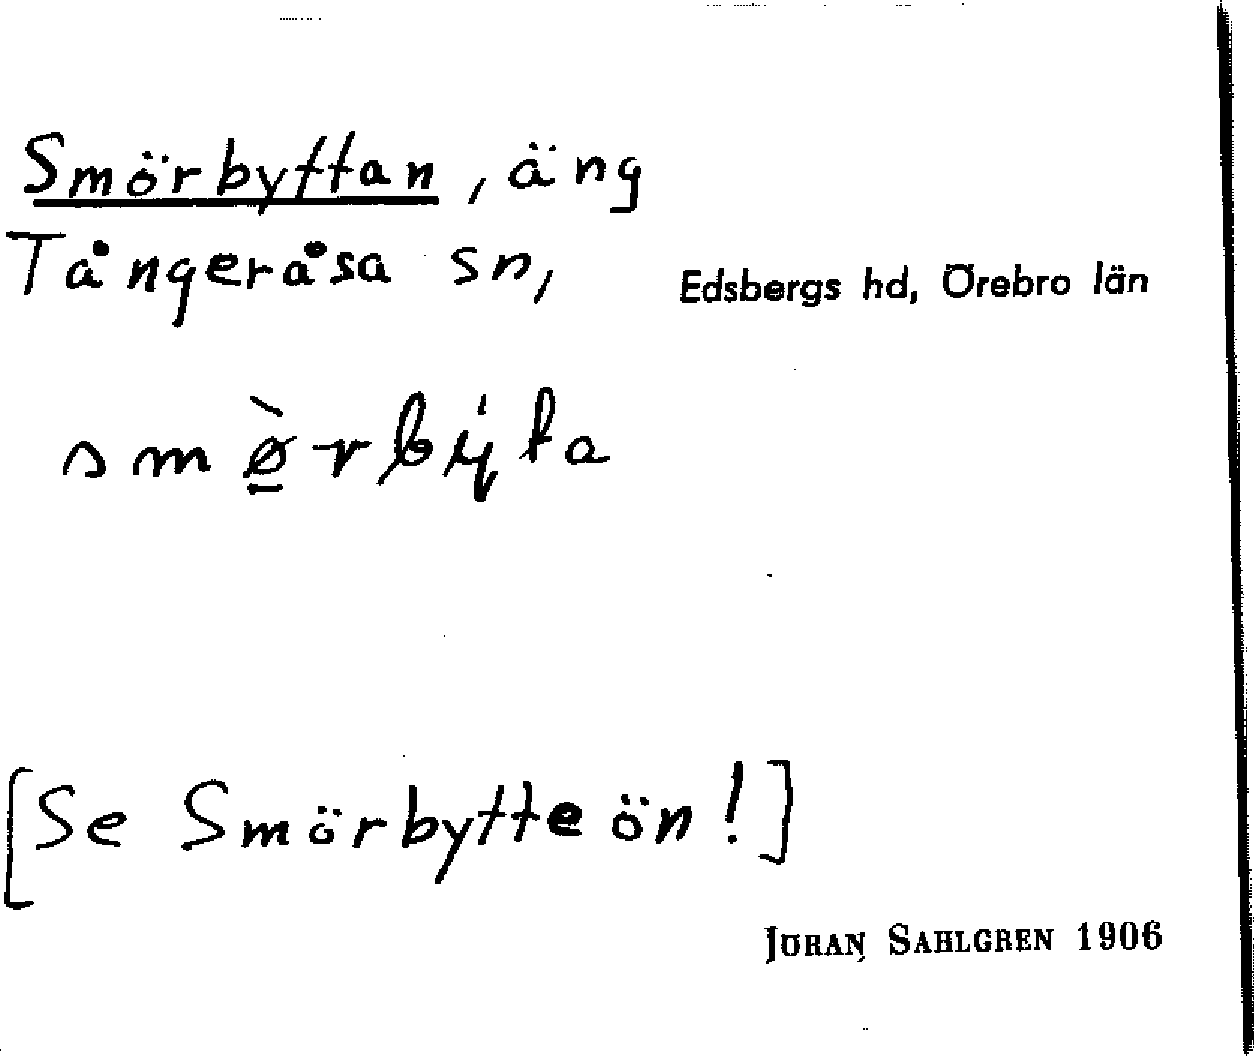 Smörbyttan, äng
Tångeråsa sn, Edsbergs hd, Örebro län
[Se Smörbytteön!]
JÖRAN SAHLGREN 1906